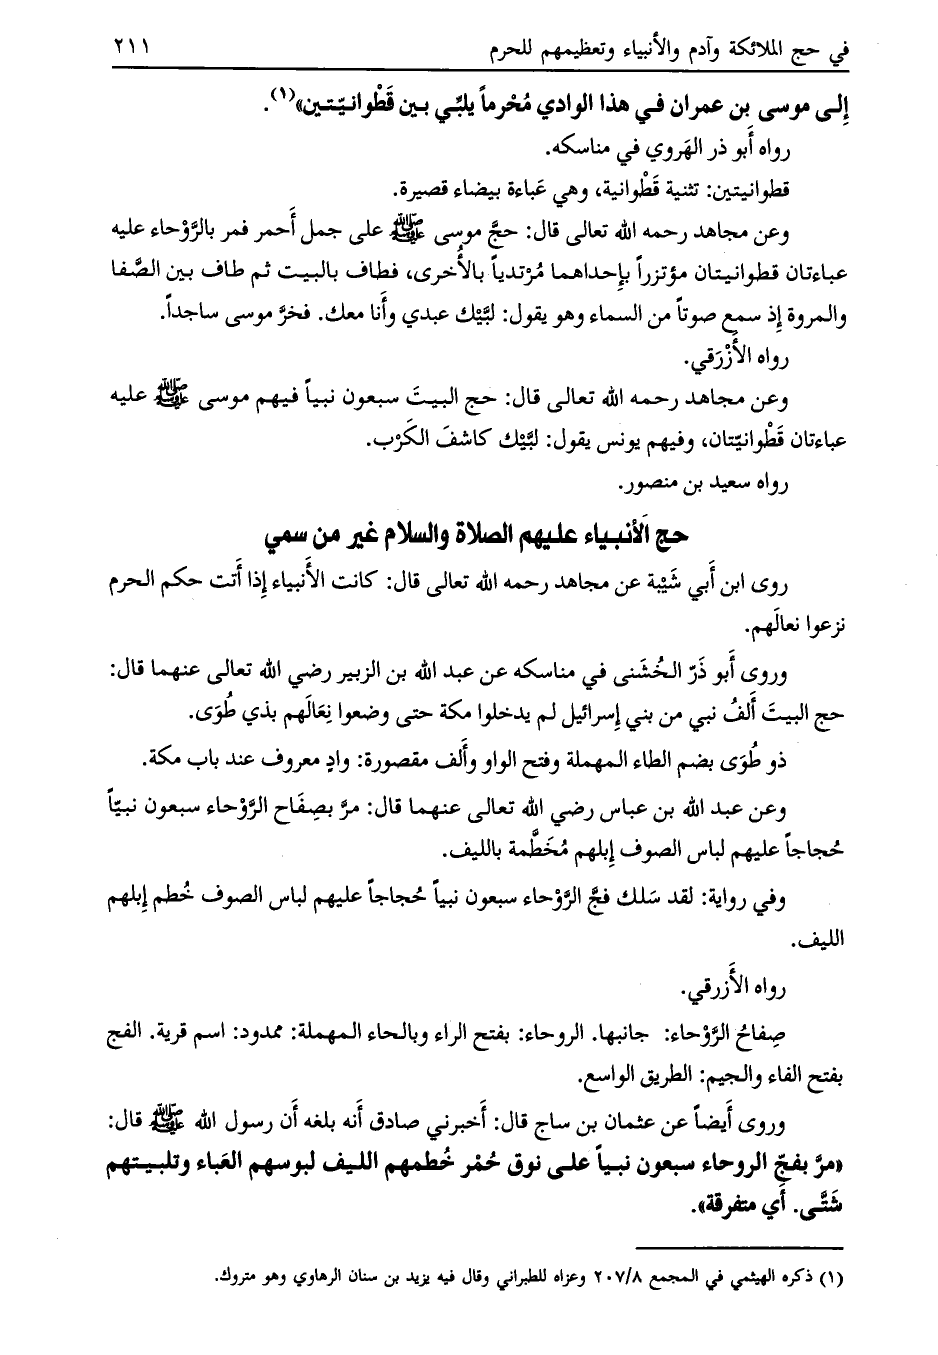 في حج الملائكة وآدم والأنبياء وتعظيمهم للحرم ٢١١
إِلى موسى بن عمران في هذا الوادي مُحْرماً يلبِّي بين قَطْوانيّتين»(١).
رواه أَبو ذر الهَروي في مناسكه.
قطوانيتين: تثنية قَطْوانية، وهي عَباءة بيضاء قصيرة.
وعن مجاهد رحمه الله تعالى قال: حجَّ موسى ﷺ على جمل أَحمر فمر بالرَّوْحاء عليه
عباءتان قطوانيتان مؤتزراً بإِحداهما مُرْتدياً بالأُخرى، فطاف بالبيت ثم طاف بين الصَّفا
والمروة إِذ سمع صوتاً من السماء وهو يقول: لبَّيْك عبدي وأَنا معك. فخرَّ موسى ساجداً.
رواه الأَزْرَقي.
وعن مجاهد رحمه الله تعالى قال: حج البيتَ سبعون نبياً فيهم موسى ﷺ عليه
عباءتان قَطْوانيّتان، وفيهم يونس يقول: لبَّيْك كاشفَ الكَرْب.
رواه سعيد بن منصور.
حج الأَنبياء عليهم الصلاة والسلام غير من سمي
روى ابن أَبي شَيْبة عن مجاهد رحمه الله تعالى قال: كانت الأَنبياء إِذا أَتت حكم الحرم
نزعوا نعالَهم.
وروى أَبو ذَرّ الخُشَنى في مناسكه عن عبد الله بن الزبير رضي الله تعالى عنهما قال:
حج البيتَ أَلفُ نبي من بني إِسرائيل لم يدخلوا مكة حتى وضعوا نِعَالَهم بذي طُوَى.
ذو طُوَى بضم الطاء المهملة وفتح الواو وأَلف مقصورة: وادٍ معروف عند باب مكة.
وعن عبد الله بن عباس رضي الله تعالى عنهما قال: مرَّ بصِفَاح الرَّوْحاء سبعون نبيّاً
حُجاجاً عليهم لباس الصوف إِبلهم مُخَطَّمة بالليف.
وفي رواية: لقد سَلك فجَّ الرَّوْحاء سبعون نبياً حُجاجاً عليهم لباس الصوف خُطم إِبلهم
الليف.
رواه الأَزرقي.
صِفاحُ الرَّوْحاء: جانبها. الروحاء: بفتح الراء وبالحاء المهملة: ممدود: اسم قرية. الفج
بفتح الفاء والجيم: الطريق الواسع.
وروى أَيضاً عن عثمان بن ساج قال: أَخبرني صادق أَنه بلغه أَن رسول الله ﷺ قال:
«مرَّ بفجّ الروحاء سبعون نبياً على نوق حُمْر خُطمهم الليف لبوسهم العَباء وتلبيتهم
شَتَّى. أَي متفرقة».
(١) ذكره الهيثمي في المجمع ٢٠٧/٨ وعزاه للطبراني وقال فيه يزيد بن سنان الرهاوي وهو متروك.